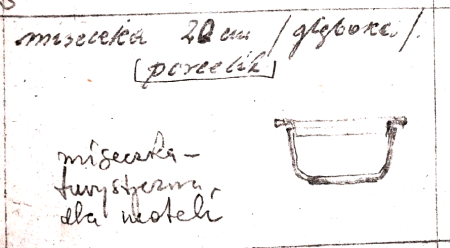 miseczka 20 cm /głęboka/.
[porcelit]
miseczka –
turystyczna
dla moteli